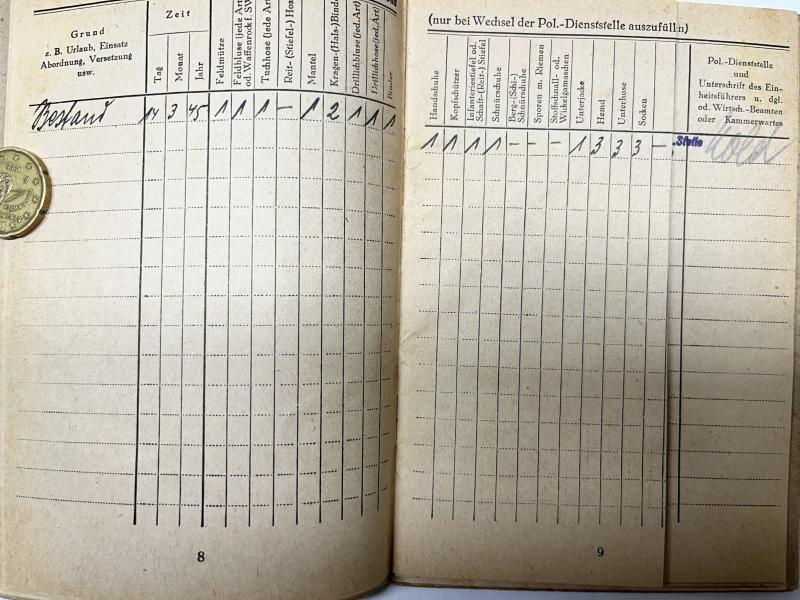 Grund
z. B. Urlaub, Einsatz
Abordnung, Versetzung
usw.
Zeit
Tag
Monat
Jahr
Feldmütze
Feldbluse (jede Art)
od. Waffenrock f. SW
Tuchhose (jede Art)
Reit- (Stiefel-) Hos
Mantel
Kragen-(Hals-)Binde
Drillichbluse (jed. Art)
Drillichhose (jed. Art)
Bestand 14 3 45 1 1 1 – 1 2 1 1 1
8
(nur bei Wechsel der Pol.-Dienststelle auszufüllen)
Handschuhe
Kopfschützer
Infanteriestiefel od.
Schaft-(Reit-) Stiefel
Schnürschuhe
Berg-(Schi-)
Schnürschuhe
Sporen m. Riemen
Stoffschnall- od.
Wickelgamaschen
Unterjacke
Hemd
Unterhose
Socken
Pol.-Dienststelle
und
Unterschrift des Ein-
heitsführers u. dgl.
od. Wirtsch.-Beamten
oder Kammerwartes
1 1 1 1 – – – 1 3 3 3 –
9